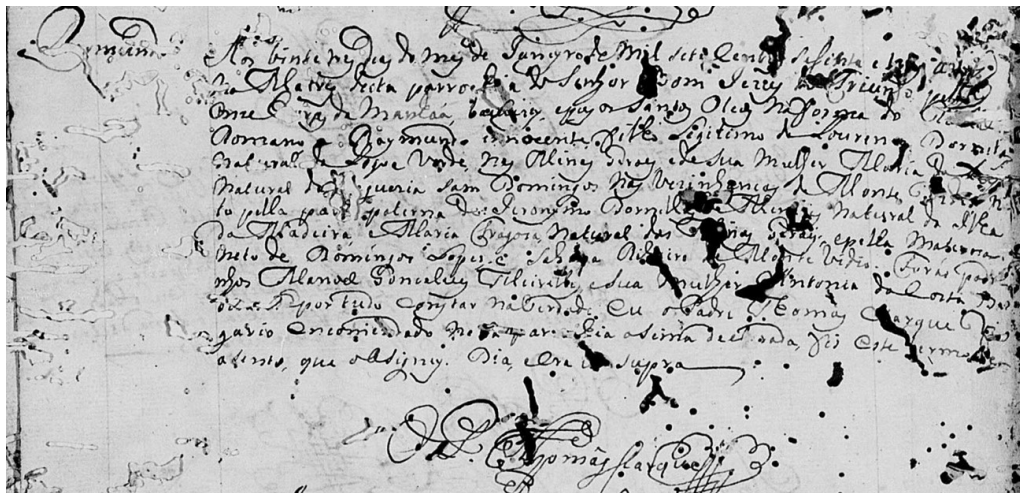 Raymundo
Aos vinte e seis do mes de Janeyro de Mil sete centos sesenta e tres annos
na Matris desta parrochia do Senhor Bom Jezus do Triunfo, pello
da baptizey e puz os Santos Oleos na forma do Ritual
Romano a Raymundo innocente, filho legitimo de Lourenço Dornelles
natural da Agoa Verde, nas Minas Gerais e de sua mulher Maria
natural de Sam Domingos nas vezinhanças de Monte Video, Ne
to pella parte paterna de Jeronymo Dornelles de Menezes natural da Ilha
da Madeira e Maria Fragoza natural das Minas Gerais; e pella Materna
neto de Domingos Lopes e Ribeiro de Monte Video. Forão padri
nhos Manoel Gonçalves e sua mulher Antonia da Costa Bar
boza. E por tudo constar na verdade. Eu o Padre Thomas Clarque Vi
gario encomendado nesta parrochia asima declarada, fis este termo
asento, que asigney. Dia, e era ut supra
O P. Thomas Clarque